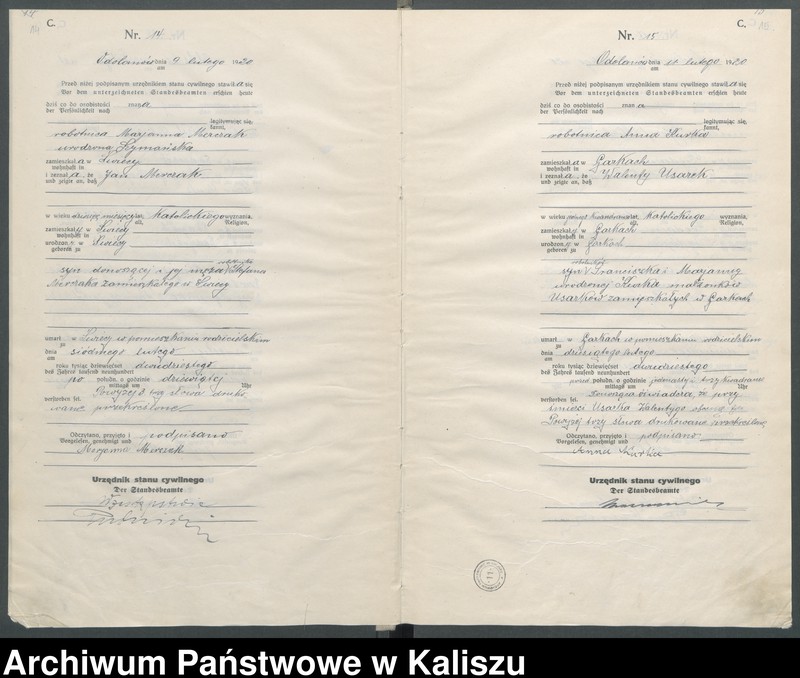 C.
Nr. 14
Odolanów dnia 9 lutego 1920
am
Przed niżej podpisanym urzędnikiem stanu cywilnego stawił a się
Vor dem unterzeichneten Standesbeamten erschien heute
dziś co do osobistości znana
der Persönlichkeit nach
legitymując się,
kannt,
robotnica Marjanna Mroczak
urodzona Szymańska
zamieszkał a w
wohnhaft in
i zeznał a, że Jan Mroczak
und zeigte an, daß
w wieku dziesięć miesięcy lat, Katolickiego wyznania,
alt, Religion,
zamieszkały w
wohnhaft in
urodzony w
geboren zu
syn donoszącej i jej męża Stefana
Mroczaka zamieszkałego w
umarł w w pomieszkaniu rodzicielskim
zu
dnia siódmego lutego
am
roku tysiąc dziewięćset dwudziestego
des Jahres tausend neunhundert
po połudn. o godzinie dziewiątej
mittags um Uhr
verstorben sei. Powyżej trzy słowa druko
wane przekreślono
Odczytano, przyjęto i podpisano
Vorgelesen, genehmigt und
Marjanna Mroczak
Urzędnik stanu cywilnego
Der Standesbeamte
W zastępstwie
C.
Nr. 15
Odolanów dnia lutego 1920
am
Przed niżej podpisanym urzędnikiem stanu cywilnego stawił a się
Vor dem unterzeichneten Standesbeamten erschien heute
dziś co do osobistości znan a
der Persönlichkeit nach
legitymując się,
kannt,
robotnica Anna Kurka
zamieszkał a w Garkach
wohnhaft in
i zeznał a, że Walenty Usarek
und zeigte an, daß
w wieku lat, Katolickiego wyznania,
alt, Religion,
zamieszkały w Garkach
wohnhaft in
urodzony w Garkach
geboren zu
syn Franciszka i Marjanny
urodzonej Kurka małżonków
Usarków zamieszkałych w Garkach
umarł w Garkach w pomieszkaniu rodzicielskim
zu
dnia dziesiątego lutego
am
roku tysiąc dziewięćset dwudziestego
des Jahres tausend neunhundert
przed połudn. o godzinie jedenastej i trzy kwadranse
mittags um Uhr
verstorben sei. Donosząca oświadcza, że przy
śmierci Usarka Walentego
Powyżej trzy słowa drukowane przekreślono
Odczytano, przyjęto i podpisano
Vorgelesen, genehmigt und
Anna Kurka
Urzędnik stanu cywilnego
Der Standesbeamte
Archiwum Państwowe w Kaliszu